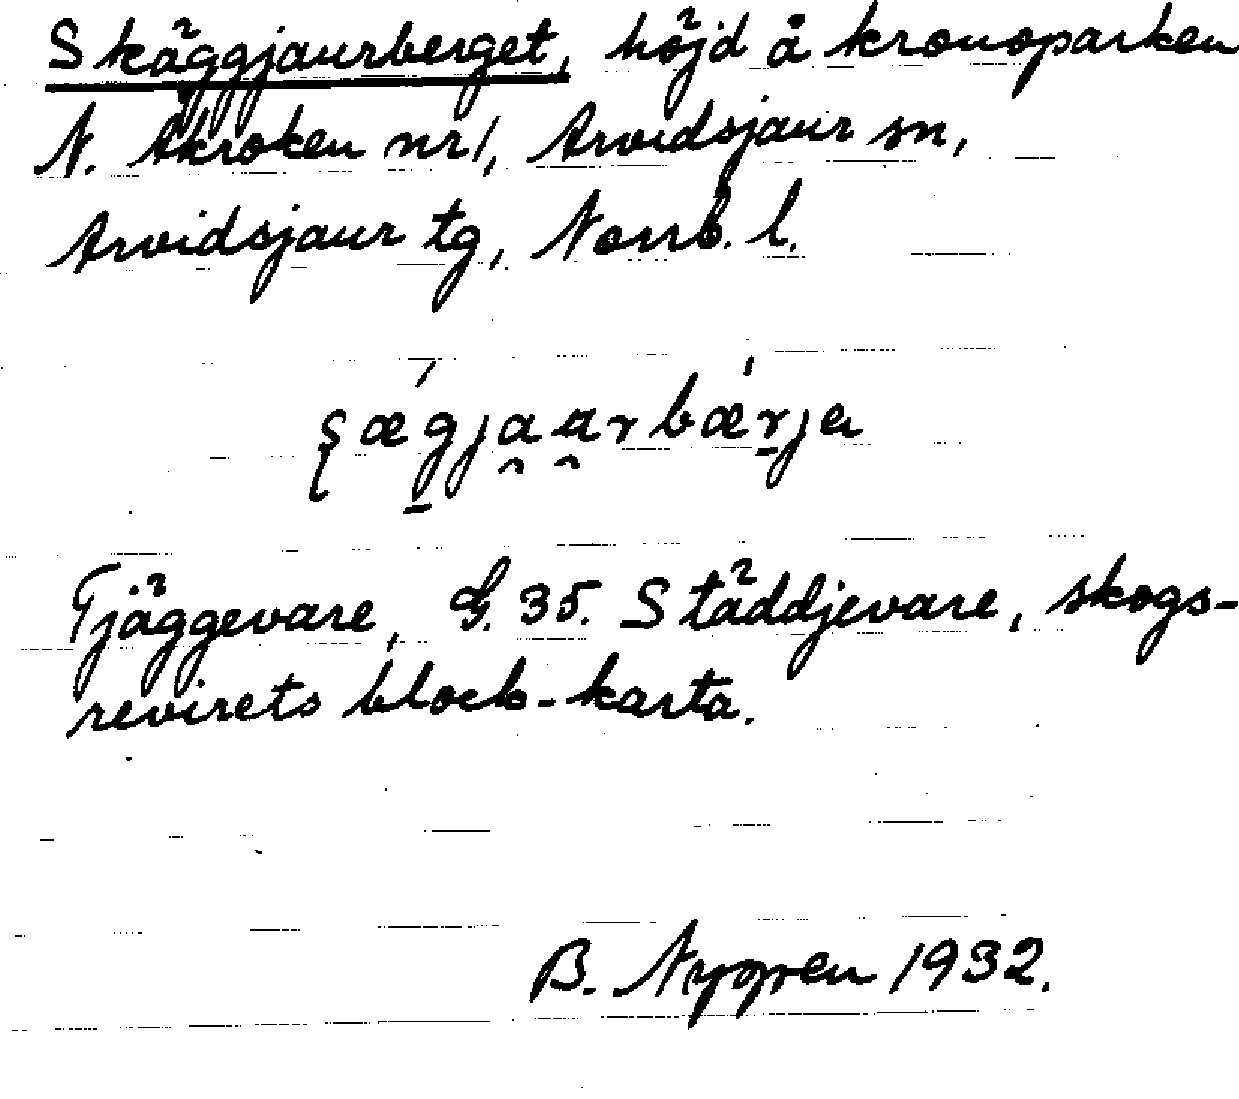 Skäggjaurberget, höjd å kronoparken
N. Åkroken nr 1, Arvidsjaur sn,
Arvidsjaur tg, Norrb. l.
Tjäggevare, G. 35. Städdjevare, skogs-
revirets block-karta.
B. Nygren 1932.